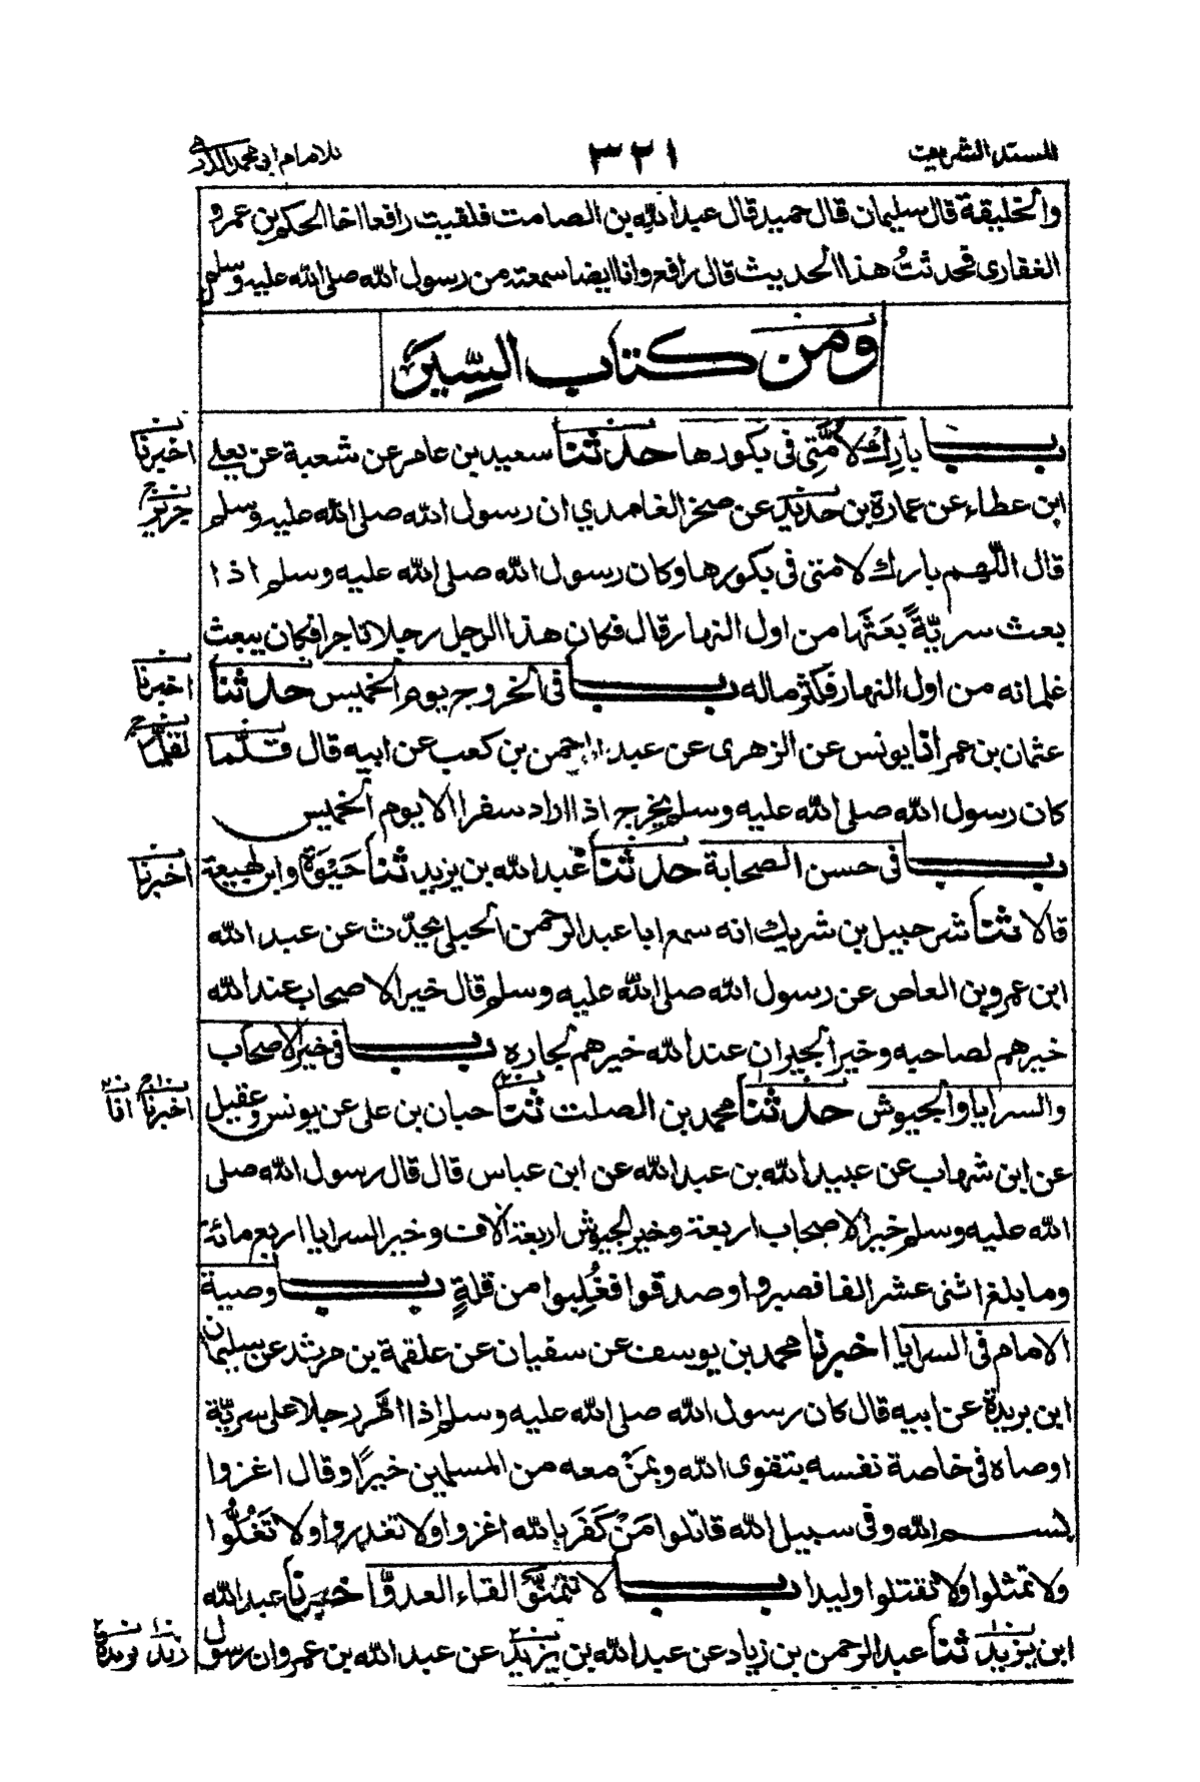 المسند الشريف ٣٢١ للامام ابى محمد الدارمى
والخليقة قال سليمان قال حميد قال عبد الله بن الصامت فلقيت رافعا اخا الحكم بن عمرو
الغفارى فحدثتُ هذا الحديث قال رافع وانا ايضا سمعته من رسول الله صلى الله عليه وسلم
ومن كتاب السِّيَر
بـــاب بارك لامَّتى فى بكورها حدثنا سعيد بن عامر عن شعبة عن يعلى اخبرنا
ابن عطاء عن عمارة بن حديد عن صخر الغامدي ان رسول الله صلى الله عليه وسلم
قال اللهم بارك لامتى فى بكورها وكان رسول الله صلى الله عليه وسلم اذا
بعث سريّةً بَعَثَها من اول النهار قال فكان هذا الرجل رجلا تاجرا فكان يبعث
غلمانه من اول النهار فكثر ماله بـــاب فى الخروج يوم الخميس حدثنا اخبرنا
عثمان بن عمر انا يونس عن الزهرى عن عبد الرحمن بن كعب عن ابيه قال قلّما لقلّما
كان رسول الله صلى الله عليه وسلم يخرج اذا اراد سفرا الا يوم الخميس
بـــاب فى حسن الصحابة حدثنا عبد الله بن يزيد ثنا حَيْوَة وابن لهيعة اخبرنا
قالا ثنا شرحبيل بن شريك انه سمع ابا عبد الرحمن الحبلى يحدّث عن عبد الله
ابن عمرو بن العاص عن رسول الله صلى الله عليه وسلم قال خير الاصحاب عند الله
خيرهم لصاحبه وخير الجيران عند الله خيرهم لجاره بـــاب فى خير الاصحاب
والسرايا والجيوش حدثنا محمد بن الصلت ثنا حبان بن على عن يونس وعقيل اخبرنا انا
عن ابن شهاب عن عبيد الله بن عبد الله عن ابن عباس قال قال رسول الله صلى
الله عليه وسلم خير الاصحاب اربعة وخير الجيوش اربعة آلاف وخير السرايا اربع مائة
وما بلغ اثنى عشر الفا فصبروا وصدقوا فغُلِبوا من قلةٍ بـــاب وصية
الامام فى السرايا اخبرنا محمد بن يوسف عن سفيان عن علقمة بن مرثد عن سليمان
ابن بريدة عن ابيه قال كان رسول الله صلى الله عليه وسلم إذا امّر رجلا على سريّة
اوصاه فى خاصة نفسه بتقوى الله وبمَنْ معه من المسلمين خيرًا وقال اغزوا
بسم الله وفى سبيل الله قاتلوا مَنْ كَفَرَ بالله اغزوا ولا تغدروا ولا تَغُلُّوا
ولا تمثلوا ولا تقتلوا وليدا بـــاب لا تتمنَّوا لقاء العدوّ اخبرنا عبد الله
ابن يزيد ثنا عبد الرحمن بن زياد عن عبد الله بن يزيد عن عبد الله بن عمرو ان رسول